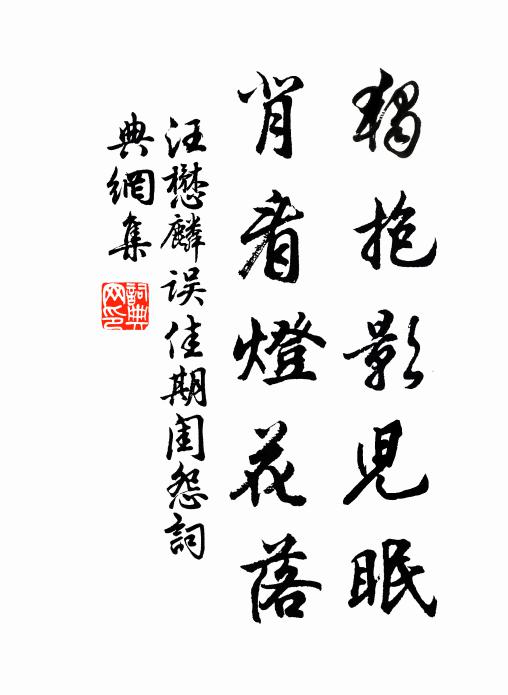 獨抱影兒眠
背看燈花落
汪懋麟误佳期闺怨詞
典網集
詞典網印